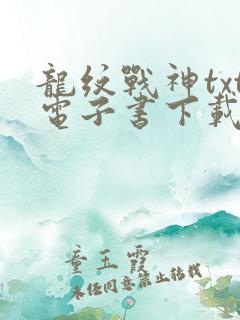 龍紋戰神txt
電子書下載
童玉霞
未經同意禁止轉載